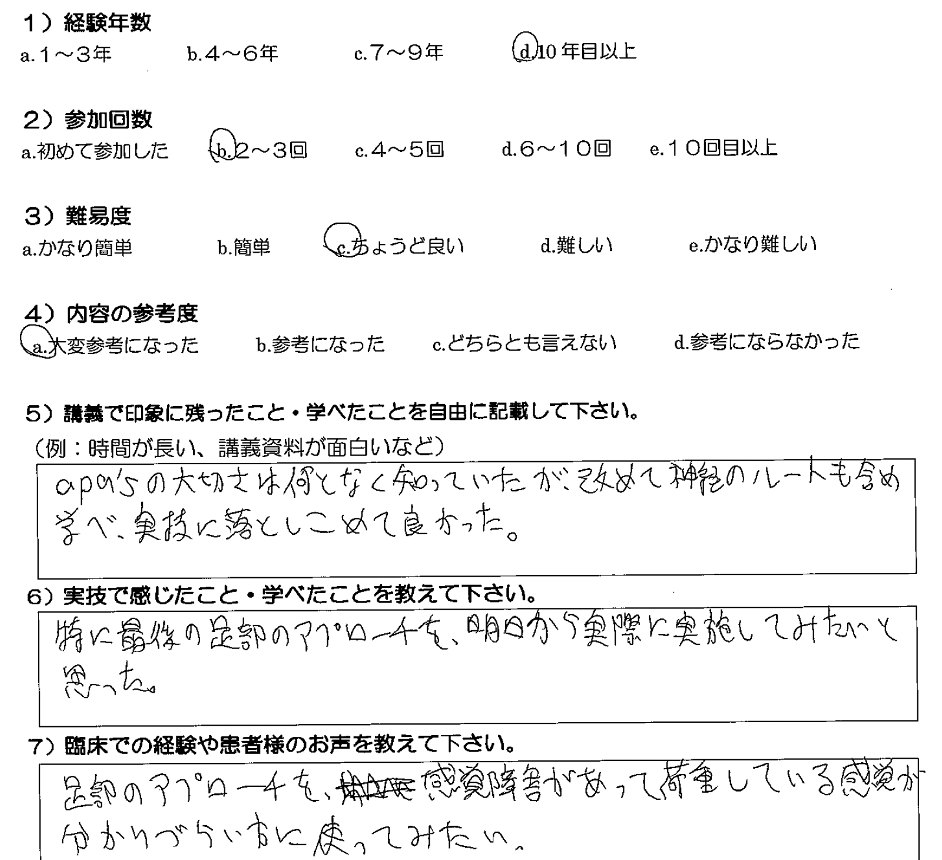 1）経験年数
a.1～3年 b.4～6年 c.7～9年 d.10年目以上
2）参加回数
a.初めて参加した b.2～3回 c.4～5回 d.6～10回 e.10回目以上
3）難易度
a.かなり簡単 b.簡単 c.ちょうど良い d.難しい e.かなり難しい
4）内容の参考度
a.大変参考になった b.参考になった c.どちらとも言えない d.参考にならなかった
5）講義で印象に残ったこと・学べたことを自由に記載して下さい。
（例：時間が長い、講義資料が面白いなど）
apa'sの大切さは何となく知っていたが、改めて神経のルートも含め
学べ、実技に落としこめて良かった。
6）実技で感じたこと・学べたことを教えて下さい。
特に最後の足部のアプローチを、明日から実際に実施してみたいと
思った。
7）臨床での経験や患者様のお声を教えて下さい。
足部のアプローチを、感覚障害があって荷重している感覚が
分かりづらい方に使ってみたい。